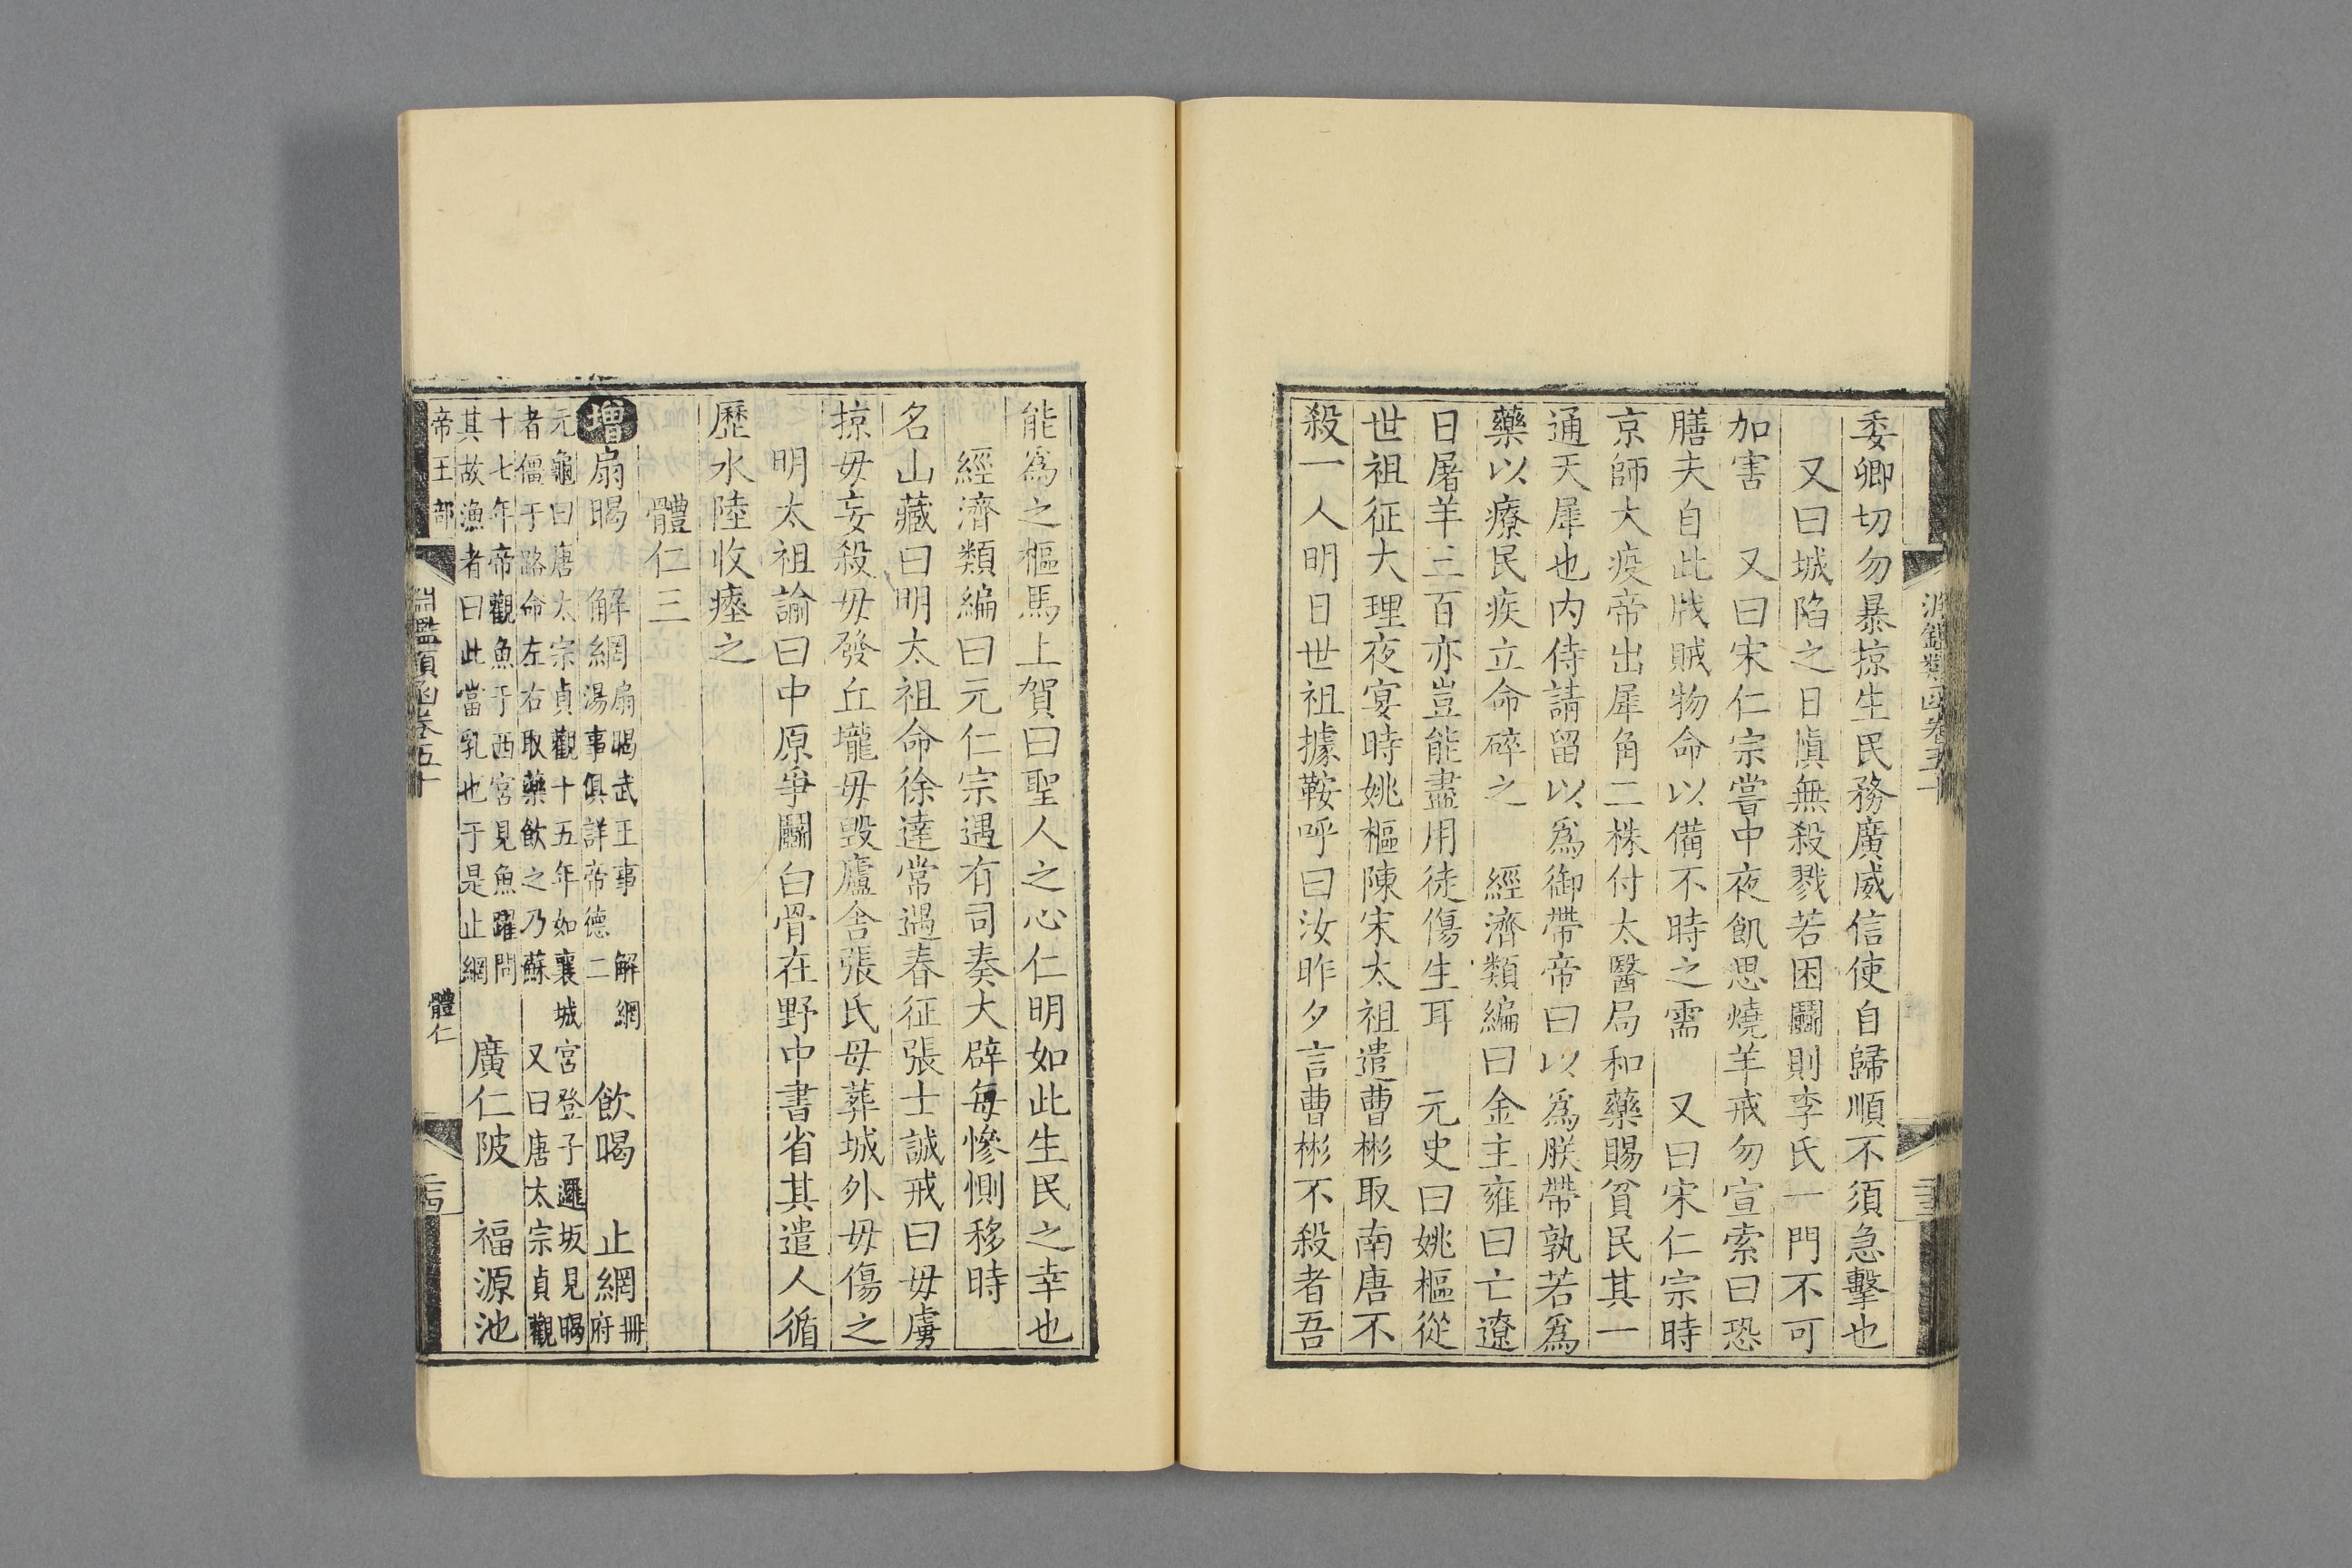 淵鑑類函卷五十
委卿切勿暴掠生民務廣威信使自歸順不須急擊也
又曰城陷之日慎無殺戮若困鬬則李氏一門不可
加害　又曰宋仁宗嘗中夜飢思燒羊戒勿宣索曰恐
膳夫自此戕賊物命以備不時之需　又曰宋仁宗時
京師大疫帝出犀角二株付太醫局和藥賜貧民其一
通天犀也內侍請留以爲御帶帝曰以爲朕帶孰若爲
藥以療民疾立命碎之　經濟類編曰金主雍曰亡遼
日屠羊三百亦豈能盡用徒傷生耳　元史曰姚樞從
世祖征大理夜宴時姚樞陳宋太祖遣曹彬取南唐不
殺一人明日世祖據鞍呼曰汝昨夕言曹彬不殺者吾
能爲之樞馬上賀曰聖人之心仁明如此生民之幸也
經濟類編曰元仁宗遇有司奏大辟每慘惻移時
名山藏曰明太祖命徐達常遇春征張士誠戒曰毋虜
掠毋妄殺毋發丘壠毋毀廬舍張氏母葬城外毋傷之
明太祖諭曰中原爭鬬白骨在野中書省其遣人循
歷水陸收瘞之
體仁三
增扇暍　解網扇暍武王事　解網
湯事俱詳帝德二　飲暍　止網冊
府
元龜曰唐太宗貞觀十五年如襄城宮登子邏坂見暍
者僵于路命左右取藥飲之乃蘇　又曰唐太宗貞觀
十七年帝觀魚于西宮見魚躍問
其故漁者曰此當乳也于是止網　廣仁陂　福源池
帝王部　淵鑑類函卷五十　體仁　二十四